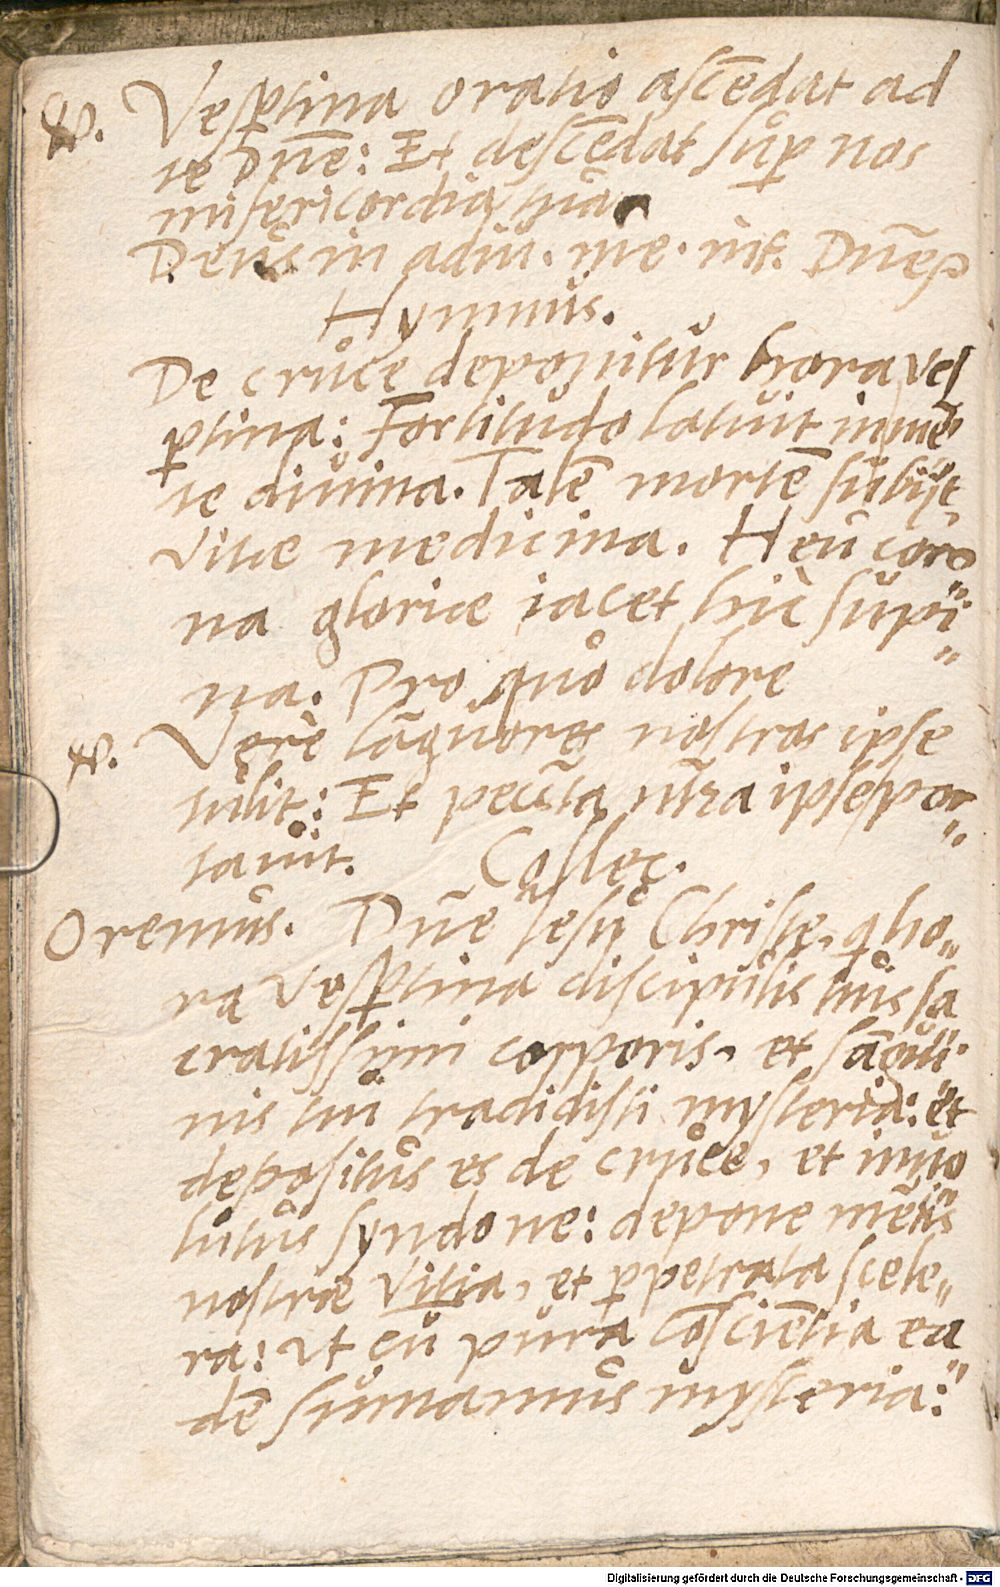 ℣. Vesꝑtina oratio ascēdat ad
te Dn̄e: Et descēdat sůꝑ nos
misericordia tua
Deůs in adiu. me. int. Dn̄e
Hymnůs.
De crůce deponitůr hora ves
ꝑtina: Fortitůdo latuit in mē"
te diůina. Talē mortē subijt
vitae medicina. Heu coro
na gloriae iacet hic sůpi"
na. Pro quo dolore
℣. Verè lāguores nostros ipse
tulit: Et peccāta nr̄a ipse por"
tauit. Collec.
Oremůs. Dn̄e Iesů Christe, q ho"
ra vesꝑtina discipůlis tuis sa
cratissimi corporis, et sāgui"
nis tui tradidisti mysteria: et
depositůs es de crůce, et inuo
lůtůs syndone: depone mētis
nostrae vitia, et ꝑpetrata scele"
ra: vt cū pura cōsciētia ea
dē sůmamůs mysteria:"
Digitalisierung gefördert durch die Deutsche Forschungsgemeinschaft - DFG